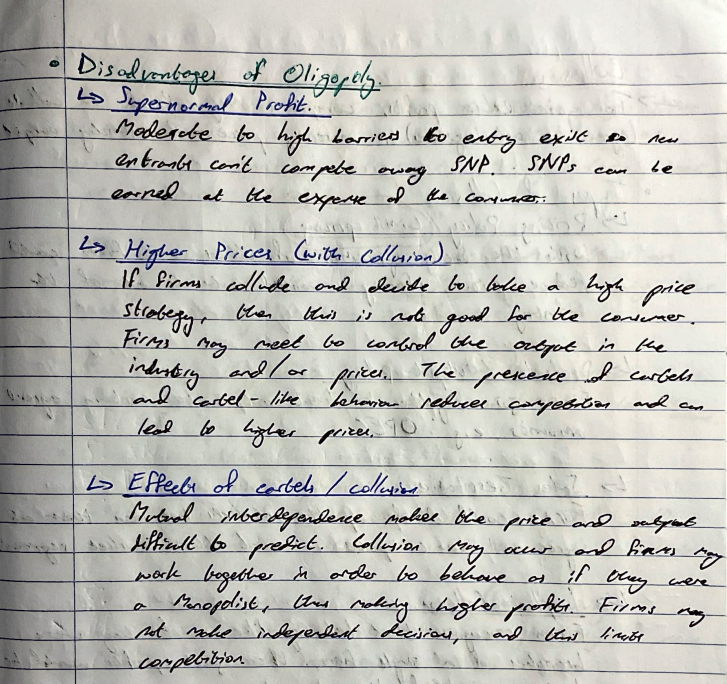 • Disadvantages of Oligopoly.
↳ Supernormal Profit.
Moderate to high barriers to entry exist so new
entrants can't compete away SNP. SNPs can be
earned at the expense of the consumer.
↳ Higher Prices (with Collusion)
If firms collude and decide to take a high price
strategy, then this is not good for the consumer.
Firms may meet to control the output in the
industry and/or prices. The prescence of cartels
and cartel-like behaviour reduces competition and can
lead to higher prices.
↳ Effects of cartels / collusion
Mutual interdependence makes the price and output
difficult to predict. Collusion may occur and firms may
work together in order to behave as if they were
a Monopolist, thus making higher profits. Firms may
not make independent decisions, and this limits
competition